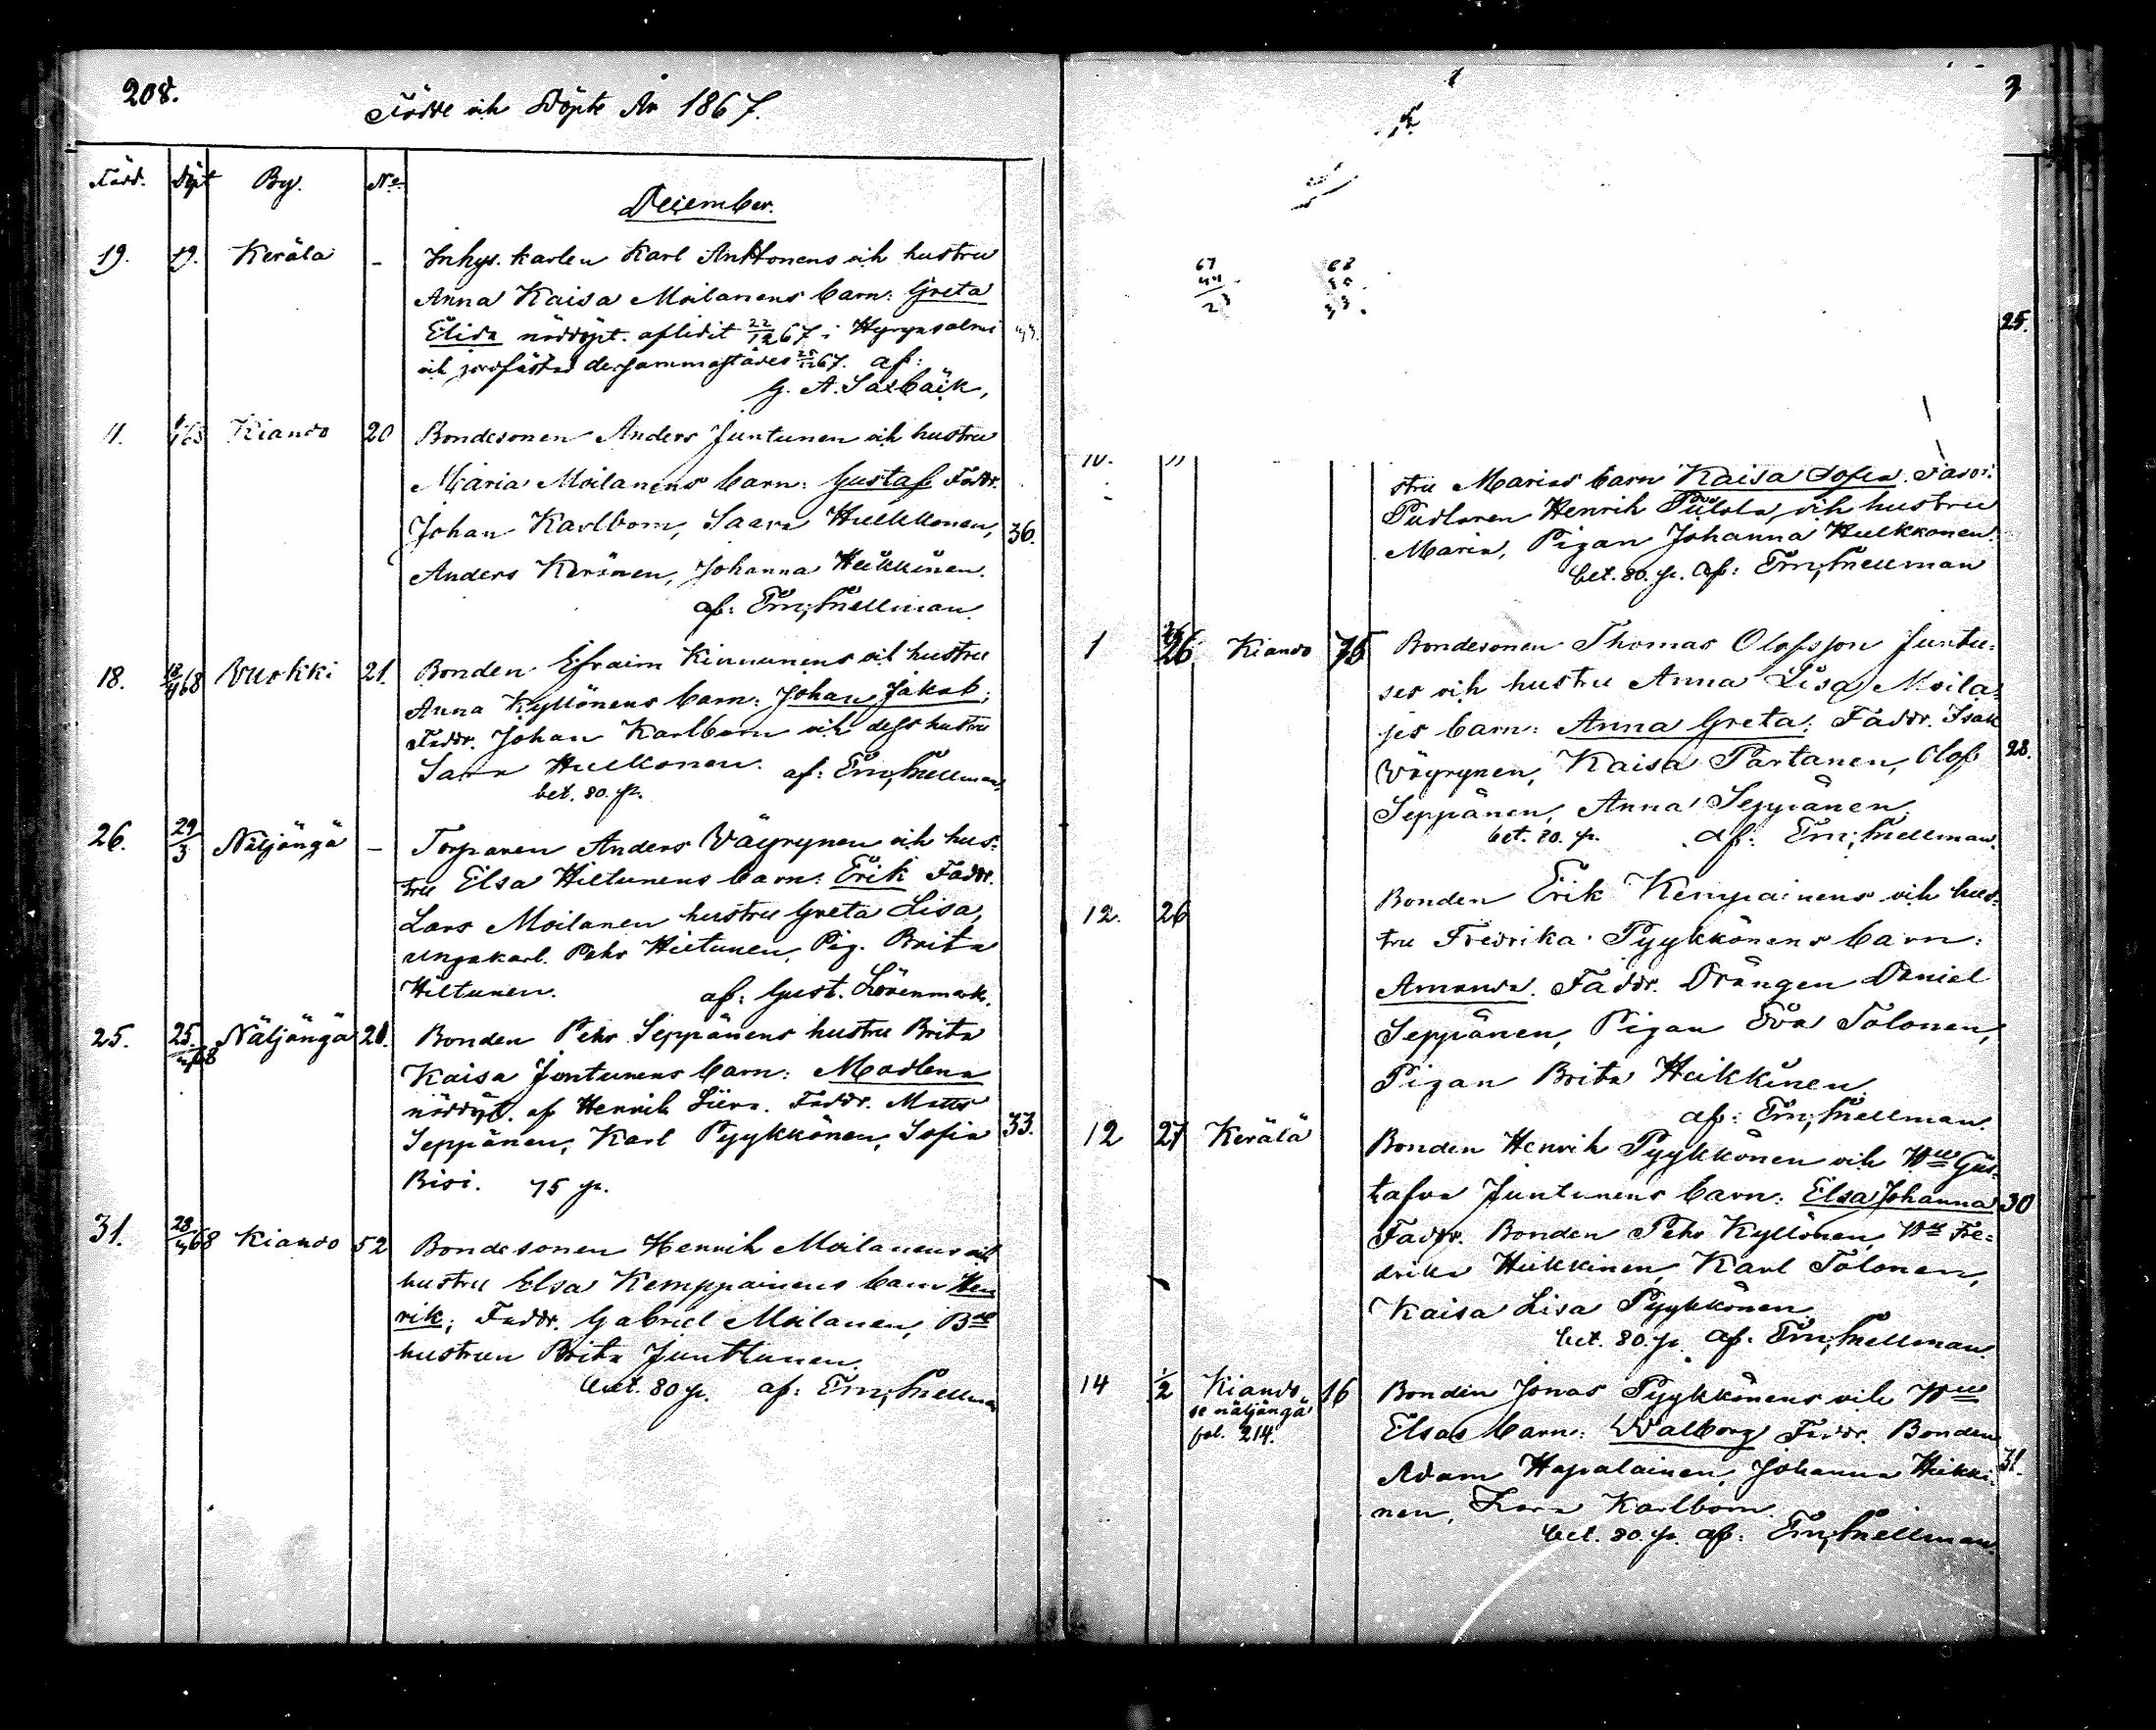 208.
Födde och Döpte År 1867.
Född. Döpt By. No.
December.
19. 19. Kerälä - Inhys. karlen Karl Anttonens och hustru
Anna Kaisa Moilanens barn: Greta
Elida nöddöpt. aflidit 22/12 67 i Hyrynsalmi
och jordfästad dersammastädes 67. af:
G. A. Saxbäck,
11. Kiando 20 Bondesonen Anders Juntunen och hustru
Maria Moilanens barn: Gustaf Faddr.
Johan Karlbom, Saara Hulkkonen, 36.
Anders Keränen, Johanna Heikkinen.
af: Ern; Snellman.
18. 68 Vuokki 21. Bonden Efraim Kinnunens och hustru
Anna Kyllönens barn: Johan Jakob;
Faddr. Johan Karlbom och dess hustru
Sara Hulkonen. af: Ern; Snellman,
bet. 80. p.
26. 29/3 Näljängä - Torparen Anders Väyrynen och hus-
tru Elsa Hiltunens barn: Erik Faddr.
Lars Moilanen hustru Greta Lisa,
ungakarl. Pehr Hiltunen, Pig. Brita
Hiltunen. af: Gust. Lövenmark.
25. 25/4 68 Näljängä 21. Bonden Pehr Seppänens hustru Brita
Kaisa Juntunens barn: Madlena
nöddöpt. af Henrik Liera. Faddr. Matts
Seppänen, Karl Pyykkönen, Sofia 33.
Bisi. 75 p.
31. 28/4 68 Kiando 52 Bondesonen Henrik Moilanens och
hustru Elsa Kemppainens barn Hen
rik; Faddr. Gabriel Moilanen, Bde
hustrun Brita Junttunen.
bet. 80 p. af: Ern; Snellman
67
44
23
68
25.
10. " stru Marias barn Kaisa Sofia. Faddr.
Henrik Piitola, och hustru
Maria, Pigan Johanna Hulkkonen.
bet. 80. p. af: Ern; Snellman
1 26 Kiando 75 Bondesonen Thomas Olofsson Juntu-
ses och hustru Anna Lisa Moila-
ses barn: Anna Greta; Faddr. Isak
Väyrynen, Kaisa Partanen, Olof 28.
Seppänen, Anna Seppänen.
bet. 80. p. af: Ern; Snellman.
12. 26 Bonden Erik Kempainens och hus-
tru Fredrika Pyykkönens barn:
Amanda. Faddr. Drängen Daniel
Seppänen, Pigan Eva Tolonen,
Pigan Brita Heikkinen
af: Ern; Snellman.
12 27 Kerälä Bonden Henrik Pyykkönen och Hu Gus-
tafva Juntunens barn: Elsa Johanna 30
Faddr. Bonden Pehr Kyllönen, Hu Fre-
drika Heikkinen, Karl Tolonen,
Kaisa Lisa Pyykkönen
bet. 80. p. af: Ern; Snellman.
14 1/2 Kiando 16 Bonden Jonas Pyykkönens och Hu
se näljängä
fol. 214.
Elsas barn: Walborg Faddr. Bonden
Adam Hapalainen, Johanna Heikki- 31.
nen, Karlbom.
bet. 80. p. af: Ern; Snellman.